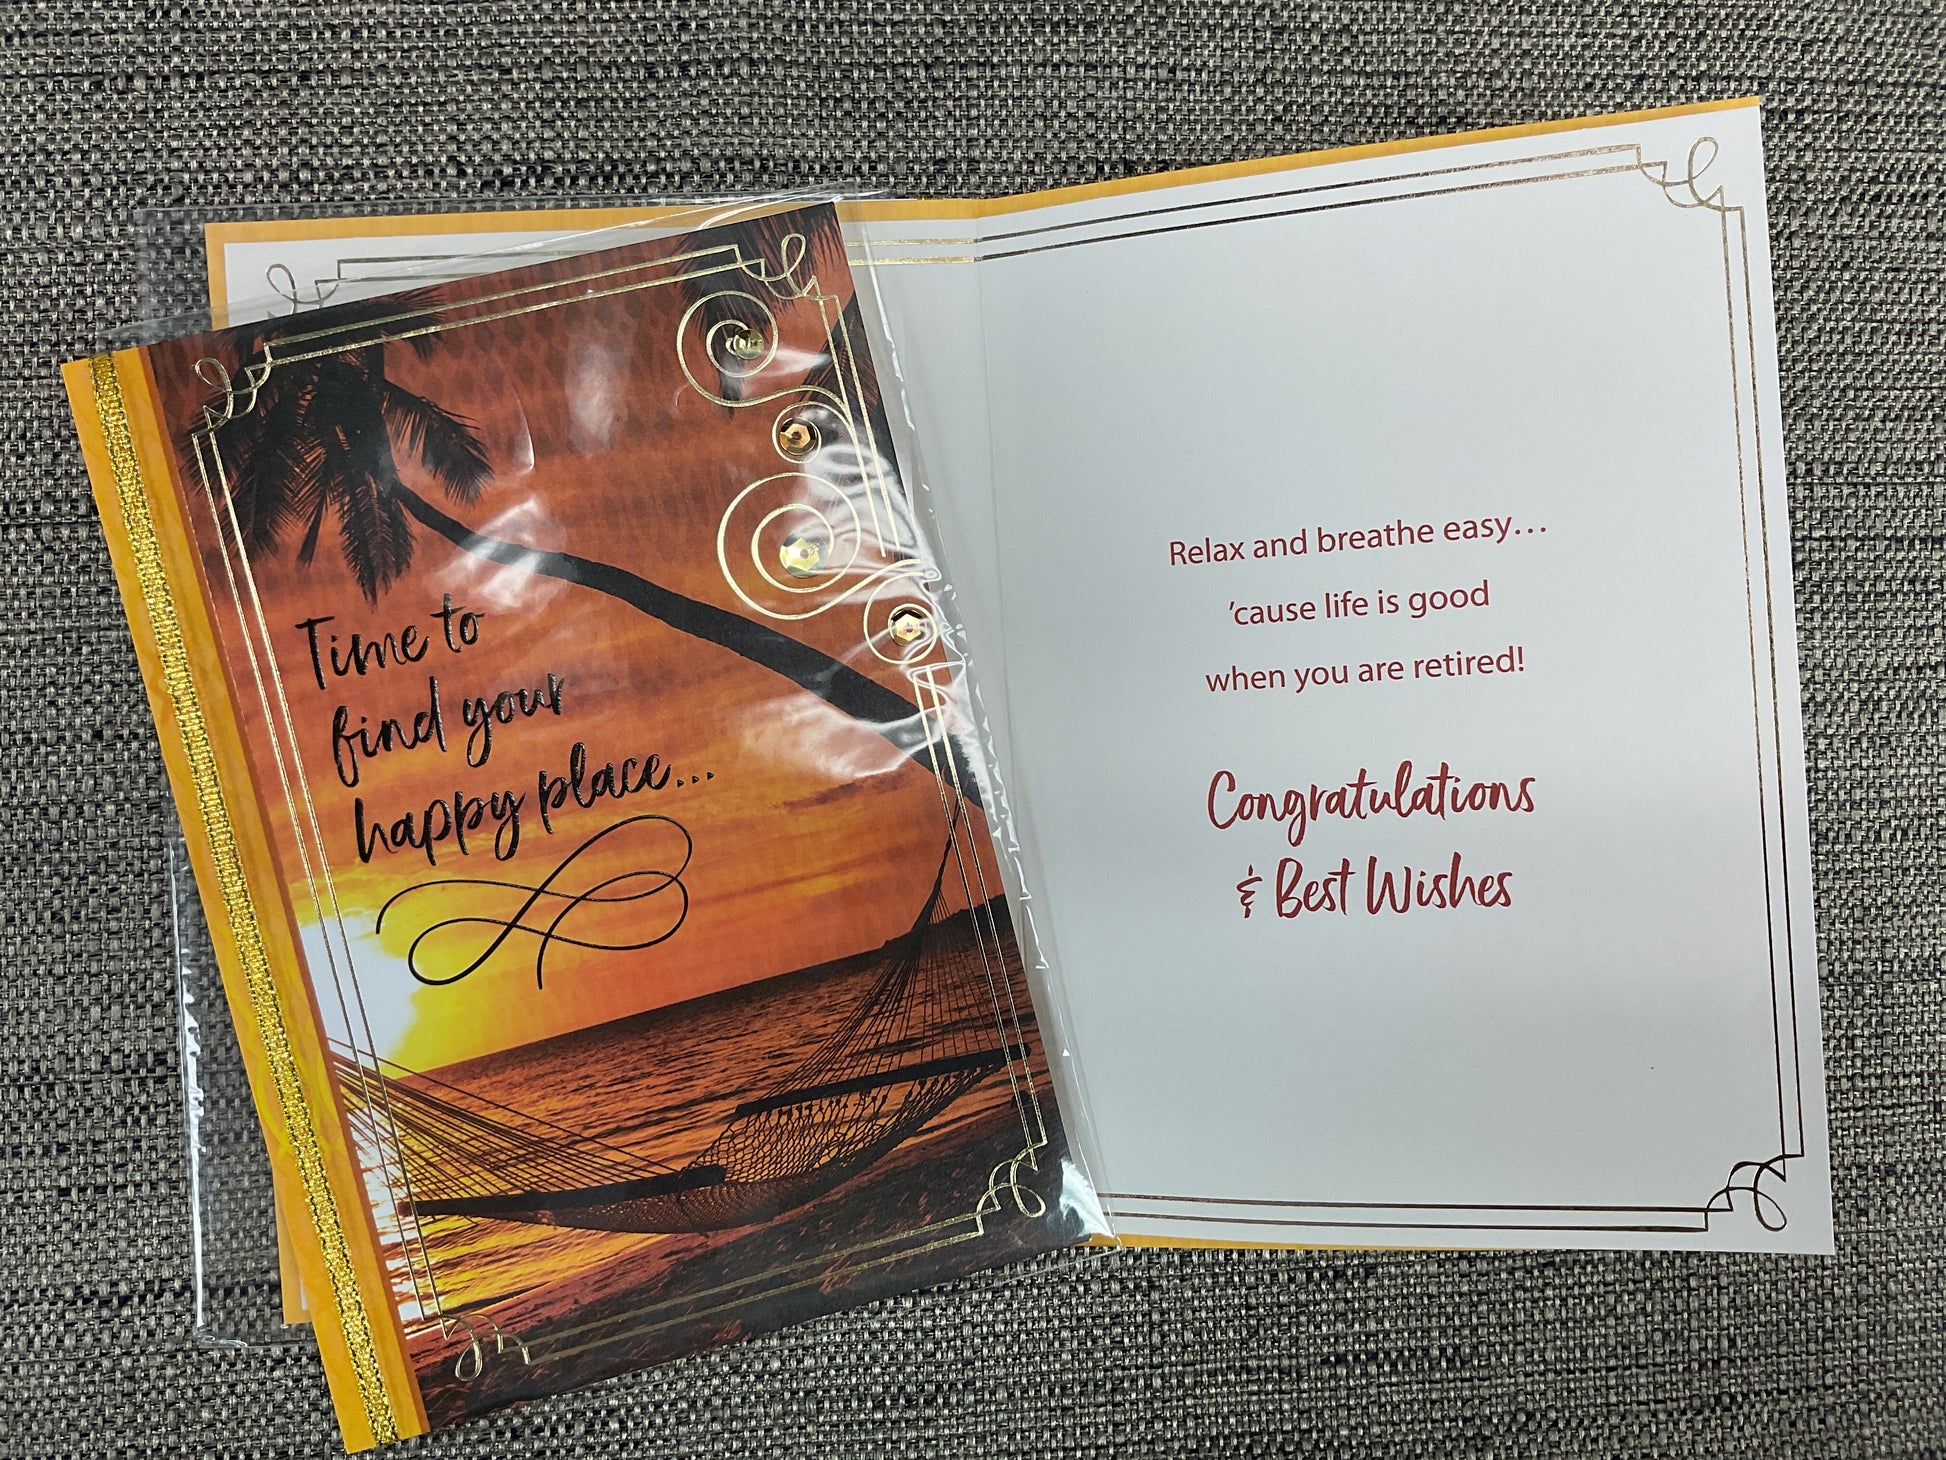 Time to
find your
happy place...
Relax and breathe easy...
'cause life is good
when you are retired!
Congratulations
& Best Wishes